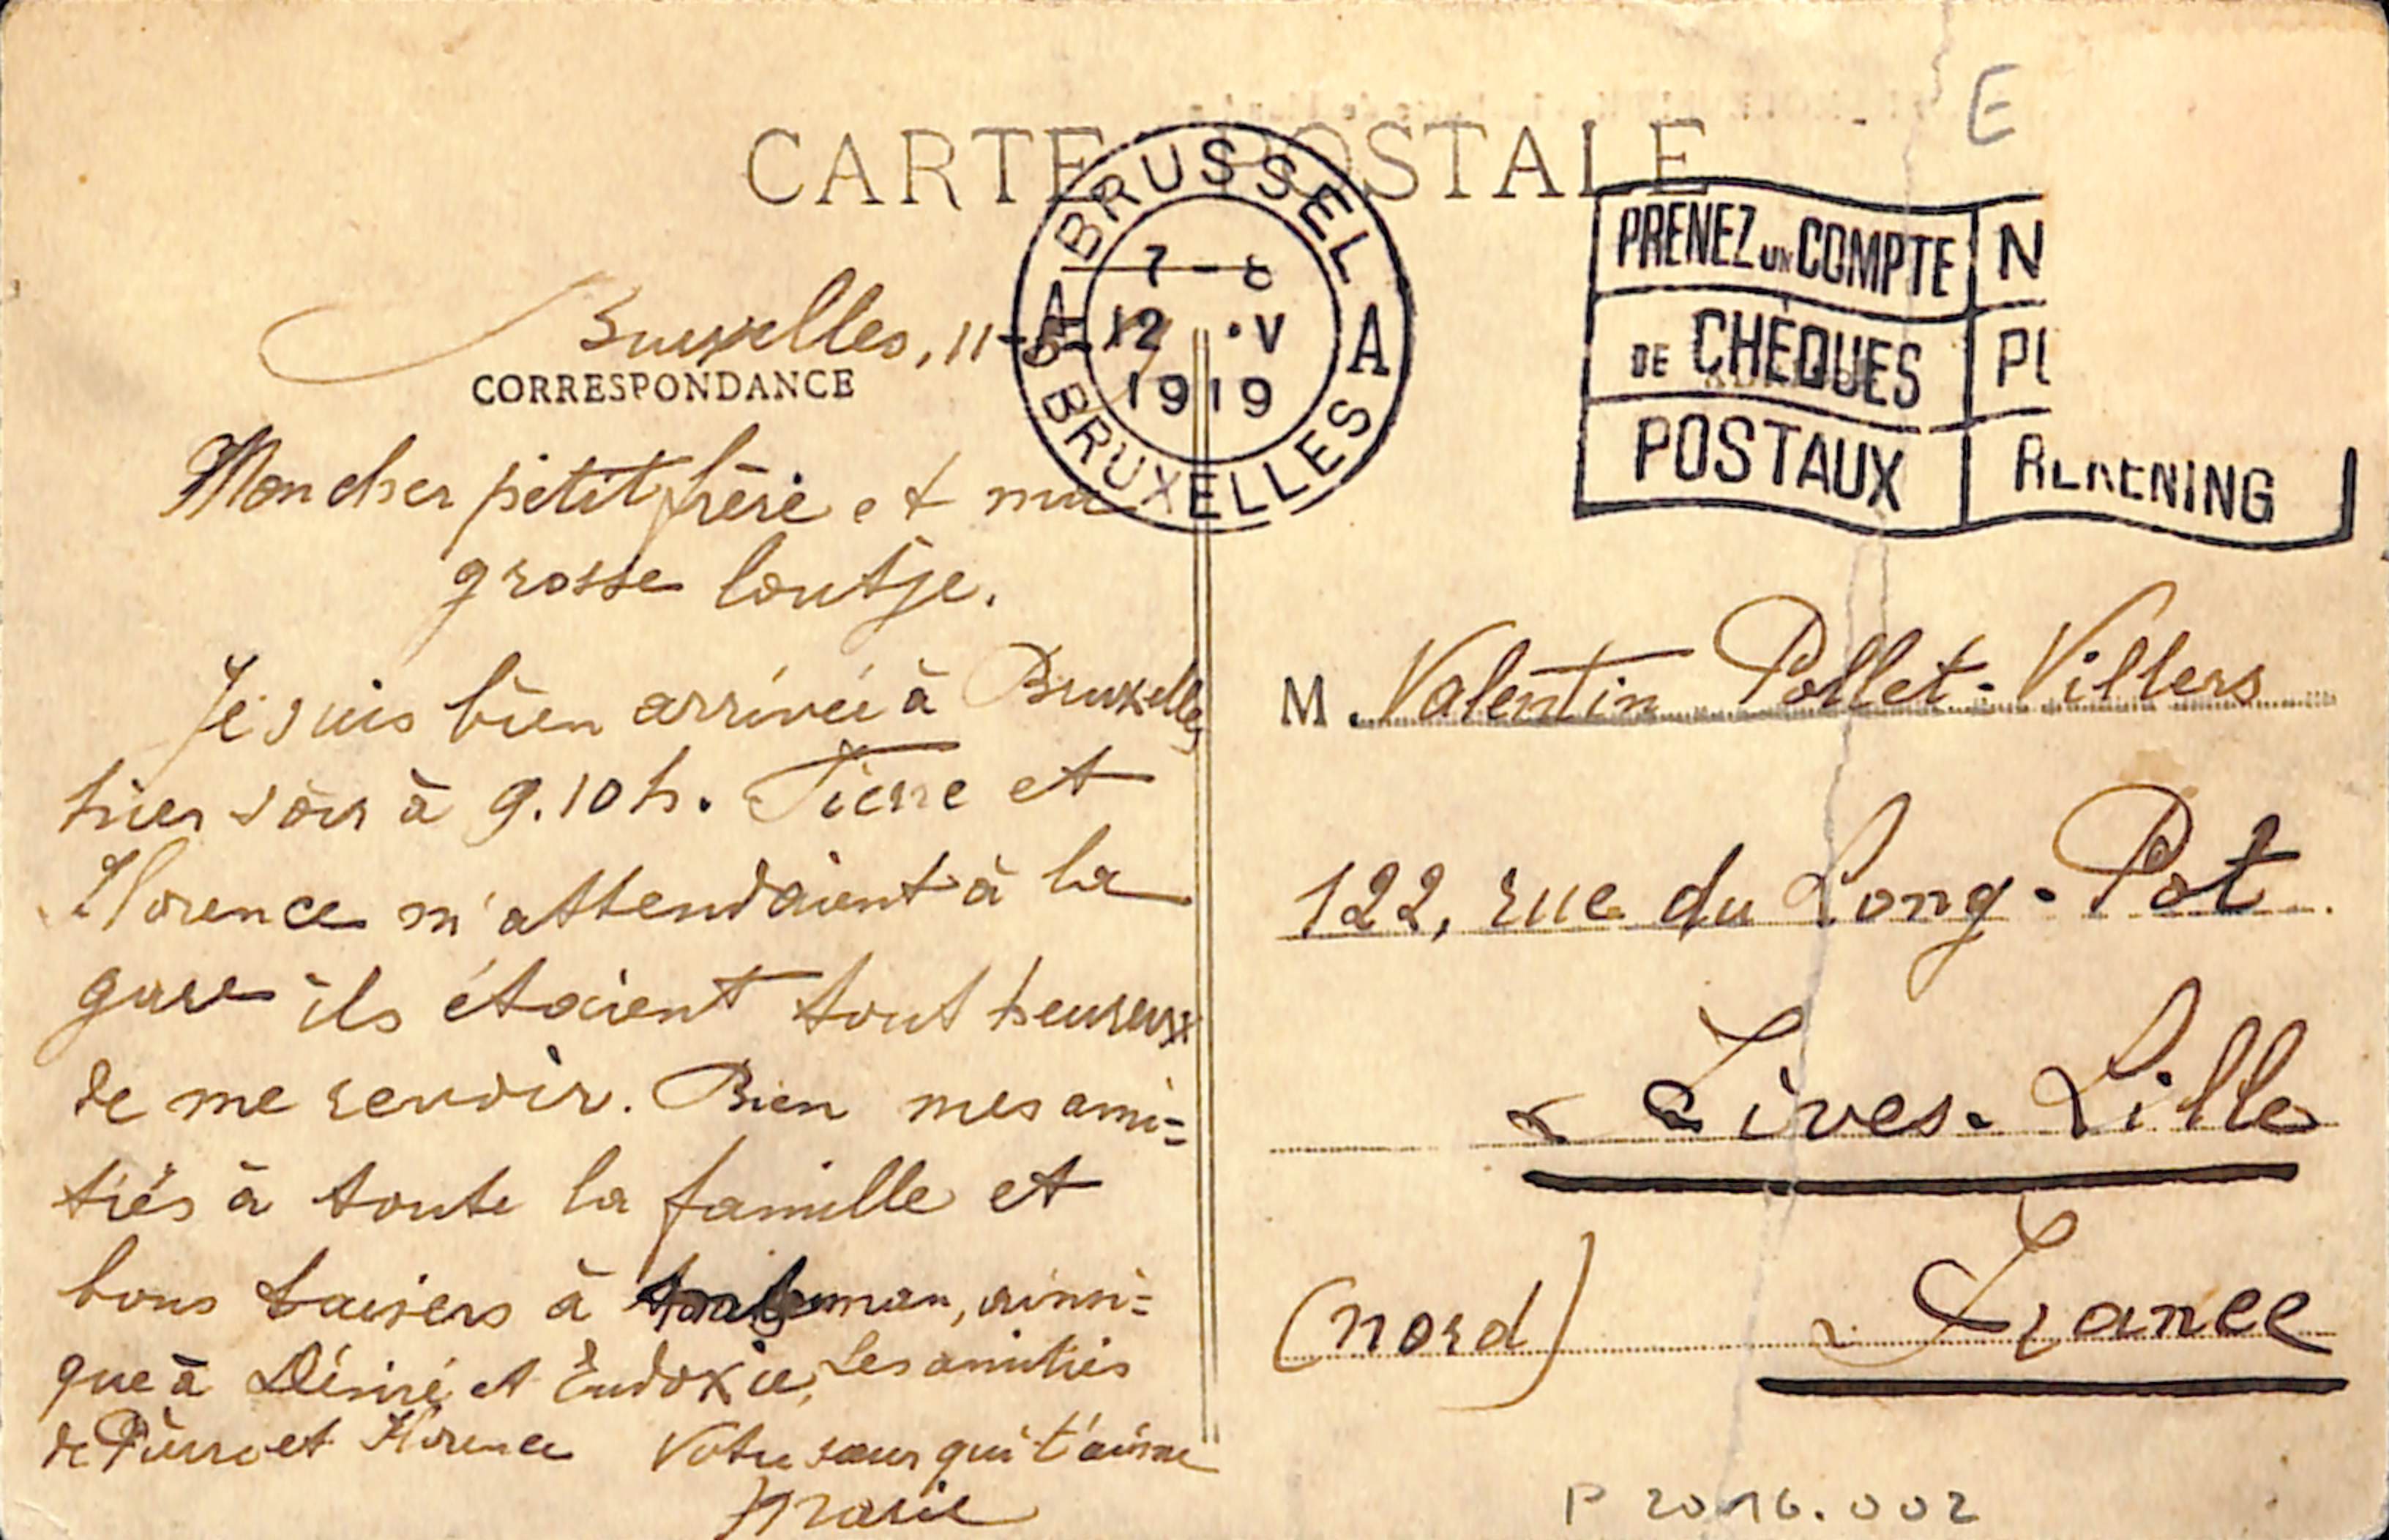 E
CARTE POSTALE
BRUSSEL
7 - 8
A 12 · V A
1919
BRUXELLES
PRENEZ UN COMPTE N
DE CHÈQUES
POSTAUX REKENING
Bruxelles, 11-5-19
CORRESPONDANCE
Mon cher petit frère et ma
grosse loutje.
Je suis bien arrivée à Bruxelles
hier soir à 9.10 h. et
Florence m'attendaient à la
gare ils étaient tout heureux
de me revoir. Bien mes ami=
tiés à toute la famille et
bons baisers à maman, ainsi=
que à Désiré et Eudoxie, Les amitiés
de Pierre et Florence Votre sœur qui t'aime
Marie
M. Valentin Pollet-Villers
122, rue du Long-Pot
à Fives-Lille
(nord) France
P 2016.002